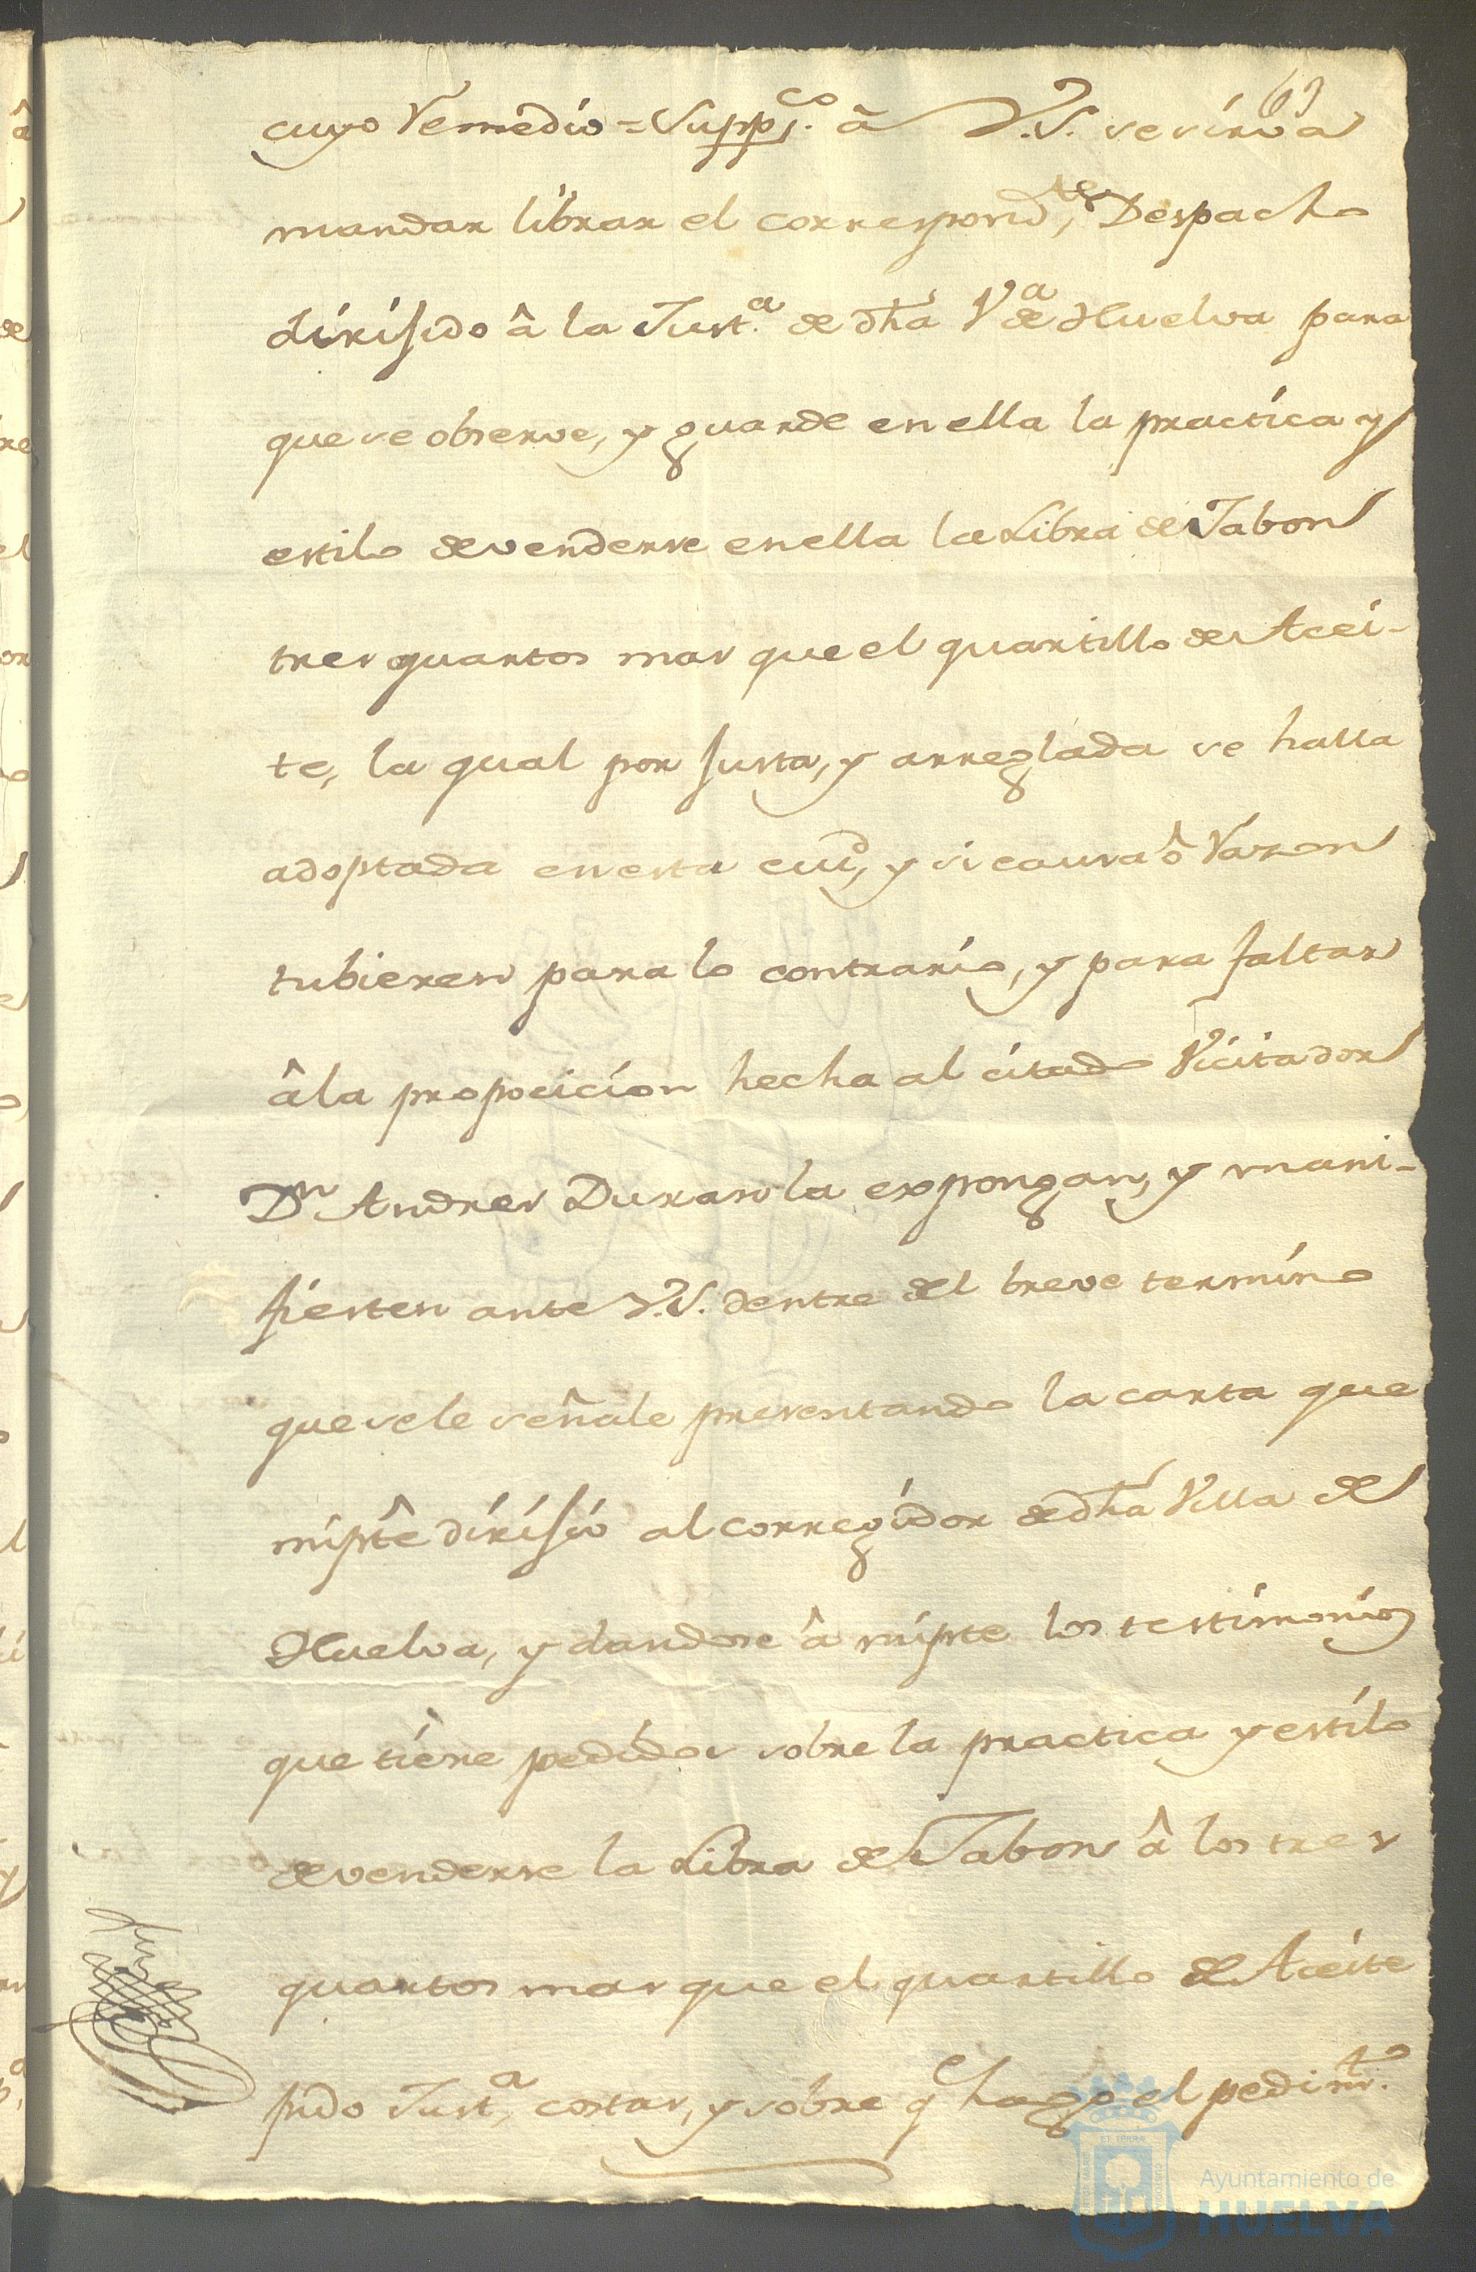 63
cuyo Remedio = Supp.co â V.S. se sirva
mandar librar el correspond.te Despacho
dirijido â la Just.a de dha V.a de Huelva para
que se observe, y guarde en ella la practica y
estilo de venderse en ella la Libra de Jabon
tres quartos mas que el quartillo de Acei-
te, la qual por justa, y arreglada se halla
adoptada en esta ciud, y si causa ô Razon
tubieren para lo contrario, y para faltar
â la proposicion hecha al citado Vicitador
Dn Andres Duran la expongan, y mani-
fiesten ante V.S. dentro del breve termino
que se le señale presentando la carta que
mi pte dirijio al corregidor de dha Villa de
Huelva, y dandose â mi pte los testimonios
que tiene pedidos sobre la practica y estilo
de venderse la Libra de Jabon â los tres
quartos mas que el quartillo de Aceite
pido Just.a, costas, y sobre q.e hago el pedim.to
Ayuntamiento de
HUELVA